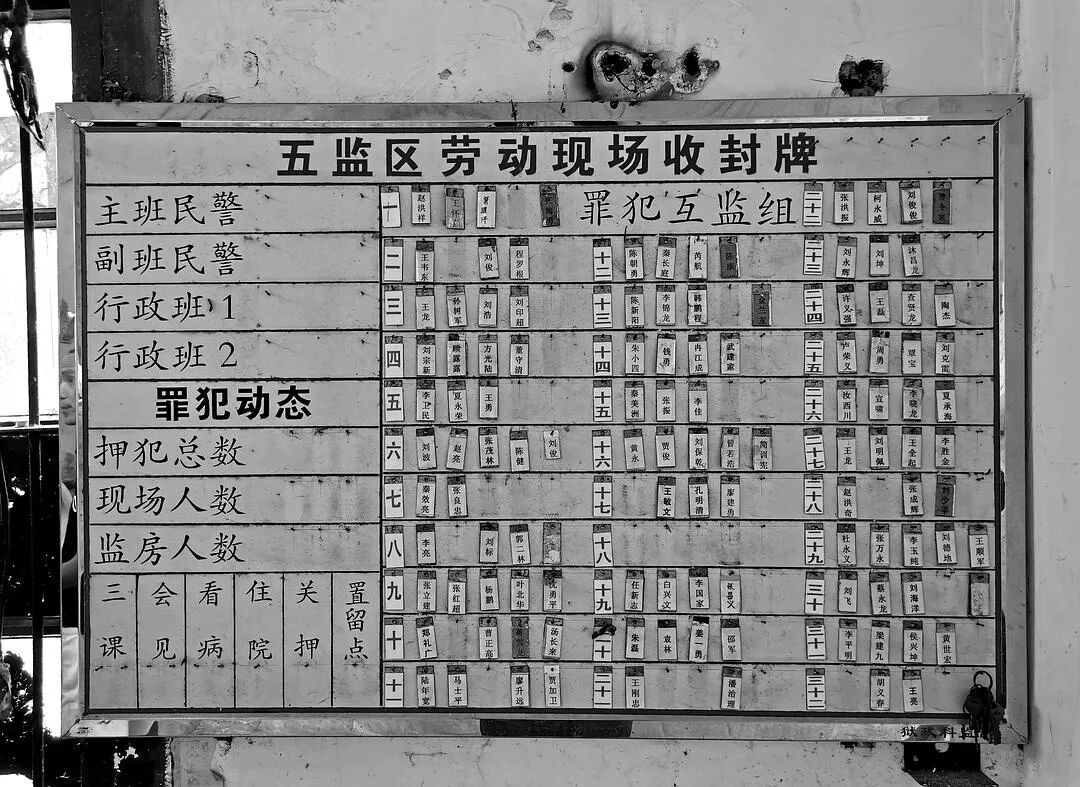 五监区劳动现场收封牌
主班民警
副班民警
行政班1
行政班2
罪犯动态
押犯总数
现场人数
监房人数
三课 会见 看病 住院 关押 置留点
罪犯互监组
一 赵洪祥
二 王韦东 刘俊 程罗根
三 王龙 孙树军 刘浩 刘印超
四 刘宗新 顾露露 方光陆 董守清
五 李卫民 夏永荣 王勇
六 刘波 赵亮 张茂林 陈健 刘俊
七 秦效亮 张良忠
八 李亮 刘标 郭二林
九 张立建 张红超 杨鹏 叶北华 沈勇平
十 郑礼广 曹正亮 汤长来
十一 陆年宽 马士平 廖升远 贾加卫
十二 陈朝勇 秦长庭 芮航 陈康
十三 陈新阳 李锦龙 韩鹏程
十四 朱小四 钱勇 冉江成 武建家
十五 秦美洲 张振 李佳
十六 黄永 贾俊 刘保乾 曾若浩 简训宪
十七 王敏文 孔明清 廖建勇
十八
十九 任新志 白兴文 李国家 崔昌义
十 朱磊 袁林 姜勇 邵军
二十一 王刚忠 潘治理
二十二 张洪振 柯永威 刘俊俊
二十三 刘永辉 刘坤 沐昌龙
二十四 许义强 王磊 查贤龙 陶杰
二十五 卢荣义 周勇 覃宝 刘克雷
二十六 汝西川 宣啸 李晓龙 夏承海
二十七 王龙 刘明佩 王全起 李胜金
二十八 赵洪奇 张成辉 刘少平
二十九 杜永义 张万永 李玉纯 刘德地 王顺军
三十 刘飞 蔡永龙 刘海洋
三十一 李平明 梁建九 侯兴坤 黄世宏
三十二 胡义春 王亮
狱政科监